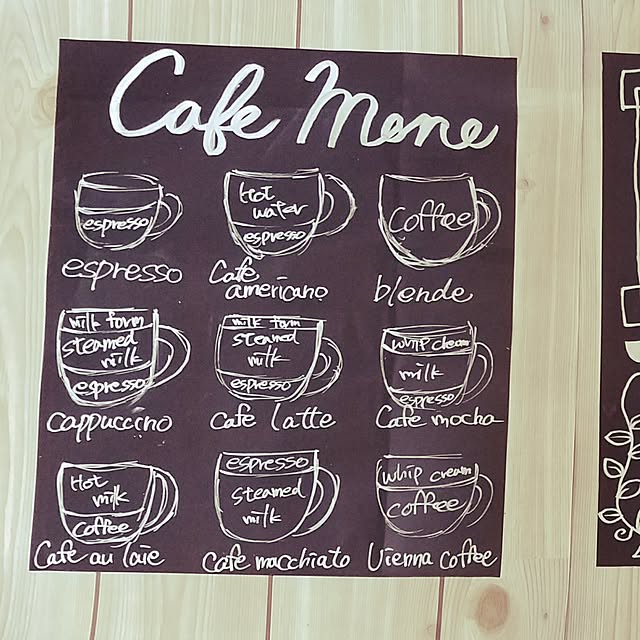 Cafe Mene
espresso
espresso
Hot
water
espresso
Cafe
americano
Coffee
blende
milk form
steamed
milk
espresso
cappuccino
milk form
steamed
milk
espresso
cafe latte
whip cream
milk
espresso
Cafe mocha
Hot
milk
coffee
Cafe au laie
espresso
steamed
milk
Cafe macchiato
whip cream
coffee
Vienna coffee